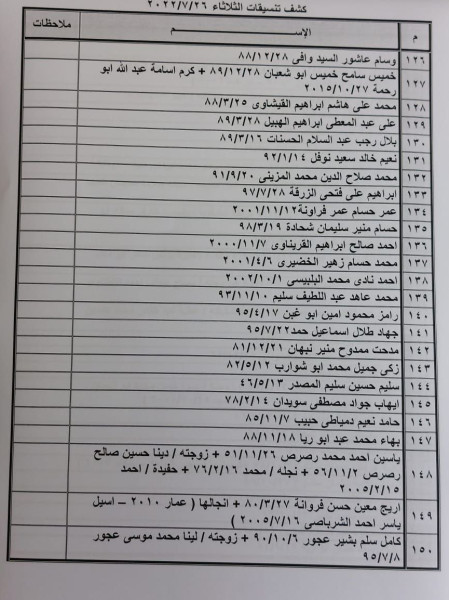 كشف تنسيقات الثلاثاء ٢٠٢٢/٧/٢٦
م الإســـم ملاحظات
١٢٦ وسام عاشور السيد وافى ٨٨/١٢/٢٨
١٢٧ خميس سامح خميس ابو شعبان ٨٩/١٢/٢٨ + كرم اسامة عبد الله ابو
رحمة ٢٠١٥/١٠/٢٧
١٢٨ محمد على هاشم ابراهيم القيشاوى ٨٨/٣/٢٥
١٢٩ على عبد المعطى ابراهيم الهبيل ٨٩/٣/٢٨
١٣٠ بلال رجب عبد السلام الحسنات ٨٩/٣/١٦
١٣١ نعيم خالد سعيد نوفل ٩٢/١/١٤
١٣٢ محمد صلاح الدين محمد المزينى ٩١/٩/٢٠
١٣٣ ابراهيم على فتحى الزرقة ٩٧/٧/٢٨
١٣٤ عمر حسام عمر فراونة٢٠٠١/١١/١٢
١٣٥ حسام منير سليمان شحادة ٩٨/٣/١٩
١٣٦ احمد صالح ابراهيم القريناوى ٢٠٠٠/١١/٧
١٣٧ محمد حسام زهير الخضيرى ٢٠٠١/٤/٦
١٣٨ احمد نادى محمد البلبيسى ٢٠٠٢/١٠/١
١٣٩ محمد عاهد عبد اللطيف سليم ٩٣/١١/١٠
١٤٠ رامز محمود امين ابو غبن ٩٥/٤/١٧
١٤١ جهاد طلال اسماعيل حمد٩٥/٧/٢٢
١٤٢ مدحت ممدوح منير نبهان ٨١/١٢/٢١
١٤٣ زكى جميل محمد ابو شوارب ٨٢/٥/١٢
١٤٤ سليم حسين سليم المصدر ٤٦/٥/١٣
١٤٥ ايهاب جواد مصطفى سويدان ٧٨/٢/١٤
١٤٦ حامد نعيم دمياطى حبيب ٨٥/١١/٧
١٤٧ بهاء محمد عبد ابو ريا ٨٨/١١/١٨
١٤٨ ياسين احمد محمد رصرص ٥١/١١/٢٦ + زوجته / دينا حسين صالح
رصرص ٥٦/١١/٢ + نجله / محمد ٧٦/٢/١٦ + حفيدة / احمد
٢٠٠٥/٢/١٥
١٤٩ اريج معين حسن فروانة ٨٠/٣/٢٧ + انجالها ( عمار ٢٠١٠ – اسيل
ياسر احمد الشرباصى ٢٠٠٥/٧/١٦ )
١٥٠ كامل سلم بشير عجور ٩٠/١٠/٦ + زوجته / لينا محمد موسى عجور
٩٥/٧/٨